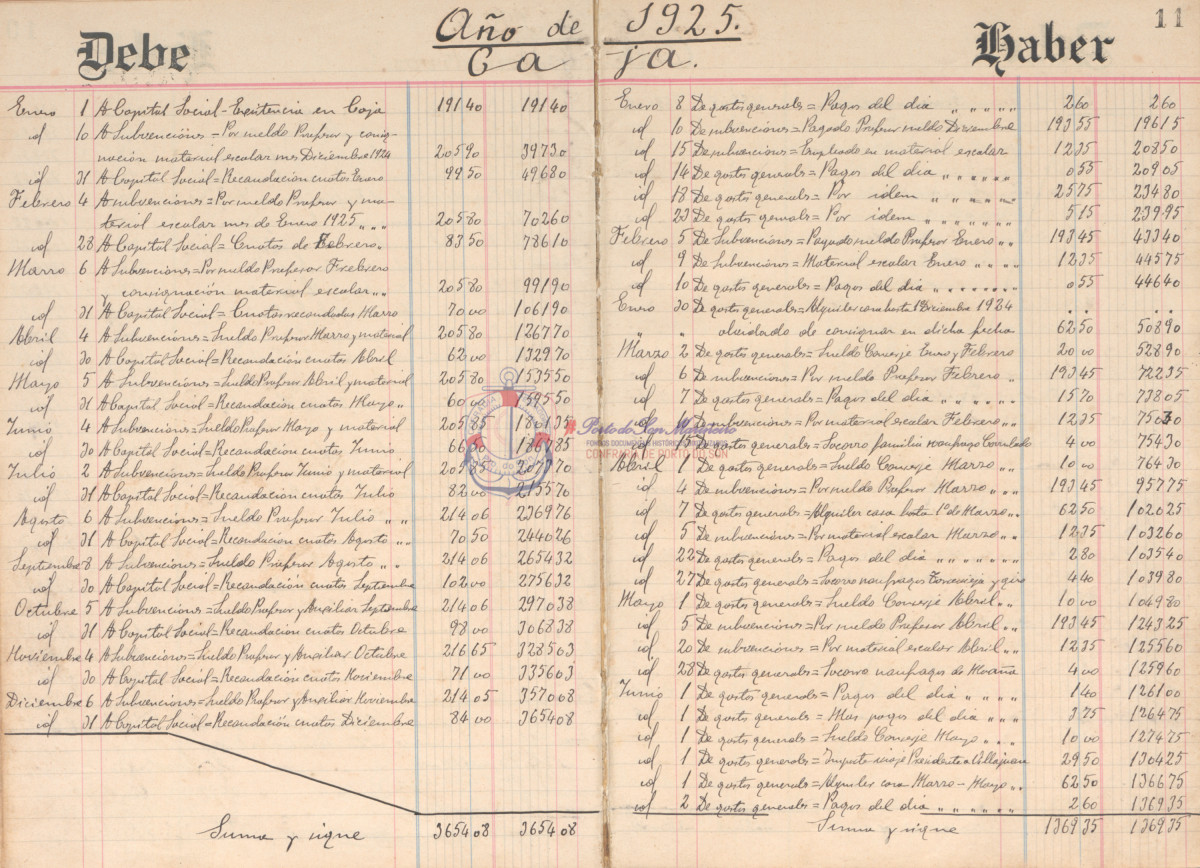 Año de 1925.
11
Debe
Caja.
Haber
Enero 1 A Capital Social = Existencia en Caja 191 40 191 40
id 10 A Subvencións = Por sueldo Profesor y consig-
nación material escolar mes Diciembre 1924 205 90 397 30
id 31 A Capital Social = Recaudación cuotas Enero 99 50 496 80
Febrero 4 A subvencions = Por sueldo Profesor y ma-
terial escolar mes de Enero 1925 " " 205 80 702 60
id 28 A Capital Social = Cuotas de Febrero " 83 50 786 10
Marzo 6 A Subvencions = Por sueldo Profesor Frebrero
y consignación material escolar " " 205 80 991 90
id 31 A Capital Social = Cuotas recaudadas Marzo 70 00 1061 90
Abril 4 A Subvencions = Sueldo Profesor Marzo y material 205 80 1267 70
id 30 A Capital Social = Recaudación cuotas Abril 62 00 1329 70
Mayo 5 A Subvencions = Sueldo Profesor Abril y material 205 80 1535 50
id 31 A Capital Social = Recaudación cuotas Mayo " 60 00 1595 50
Junio 4 A Subvencions = Sueldo Profesor Mayo y material 205 85 1801 35
id 30 A Capital Social = Recaudación cuotas Junio
Julio 2 A Subvencions = Sueldo Profesor Junio y material 205 85
id 31 A Capital Social = Recaudación cuotas Julio 82 00 2155 70
Agosto 6 A Subvencions = Sueldo Profesor Julio " " 214 06 2369 76
id 31 A Capital Social = Recaudación cuotas Agosto " " 70 50 2440 26
Septiembre 8 A Subvencions = Sueldo Profesor Agosto " " 214 06 2654 32
id 30 A Capital Social = Recaudación cuotas Septiembre 102 00 2756 32
Octubre 5 A Subvencions = Sueldo Profesor y Auxiliar Septiembre 214 06 2970 38
id 31 A Capital Social = Recaudación cuotas Octubre 98 00 3068 38
Noviembre 4 A Subvencions = Sueldo Profesor y Auxiliar Octubre 216 65 3285 03
id 30 A Capital Social = Recaudación cuotas Noviembre 71 00 3356 03
Diciembre 6 A Subvencions = Sueldo Profesor y Auxiliar Noviembre 214 05 3570 08
id 31 A Capital Social = Recaudación cuotas Diciembre 84 00 3654 08
Suma y sigue 3654 08 3654 08
Enero 8 De gastos generales = Pagos del dia " " " " " 2 60 2 60
id 10 De subvencions = Pagado Profesor sueldo Diciembre 193 55 196 15
id 15 De subvencions = Empleado en material escolar 12 35 208 50
id 14 De gastos generales = Pagos del dia " " " " " 0 55 209 05
id 18 De gastos generales = Por idem " " " " " 25 75 234 80
id 23 De gastos generales = Por idem " " " " " 5 15 239 95
Febrero 5 De Subvencions = Pagado sueldo Profesor Enero " " 193 45 433 40
id 9 De Subvencions = Material escolar Enero " " " " 12 35 445 75
id 10 De gastos generales = Pagos del dia " " " " " " 0 55 446 40
Enero 30 De gastos generales = Alquiler casa hasta 1º Diciembre 1924 " "
" " olvidado de consignar en dicha fecha 62 50 508 90
Marzo 2 De gastos generales = Sueldo Conserje Enero y Febrero 20 00 528 90
id 6 De subvencions = Por sueldo Profesor Febrero " 193 45 722 35
id 7 De gastos generales = Pagos del dia " " " " " 15 70 738 05
De subvencions = Por material escolar Febrero " " 12 35
De gastos generales = Socorro familia naufrago Corrubedo 4 00 754 30
Abril 1 De gastos generales = Sueldo Conserje Marzo " " 10 00 764 30
id 4 De subvencions = Por sueldo Profesor Marzo " " " 193 45 957 75
id 7 De gastos generales = Alquiler casa hasta 1º de Marzo " " 62 50 1020 25
id 5 De subvencions = Por material escolar Marzo " " 12 35 1032 60
id 22 De gastos generales = Pagos del dia " " " " " 2 80 1035 40
id 27 De gastos generales = Socorro naufragos Torrevieja y giro 4 40 1039 80
Mayo 1 De gastos generales = Sueldo Conserje Abril " " 10 00 1049 80
id 5 De subvencions = Por sueldo Profesor Abril " " 193 45 1243 25
id 20 De subvencions = Por material escolar Abril " " 12 35 1255 60
id 28 De gastos generales = Socorro naufragos de Moaña 4 00 1259 60
Junio 1 De gastos generales = Pagos del dia " " " " 1 40 1261 00
id 1 De gastos generales = Mas pagos del dia " " " " 3 75 1264 75
id 1 De gastos generales = Sueldo Conserje Mayo " " " 10 00 1274 75
id 1 De gastos generales = Importe viaje Presidente a Villajuan 29 50 1304 25
id 1 De gastos generales = Alquiler casa Marzo - Mayo " " 62 50 1366 75
id 2 De gastos generales = Pagos del dia " " " " " " 2 60 1369 35
Suma y sigue 1369 35 1369 35
Porto do Son Mariñeiro
FONDOS DOCUMENTAIS HISTÓRICOS
CONFRARÍA DE PORTO DO SON